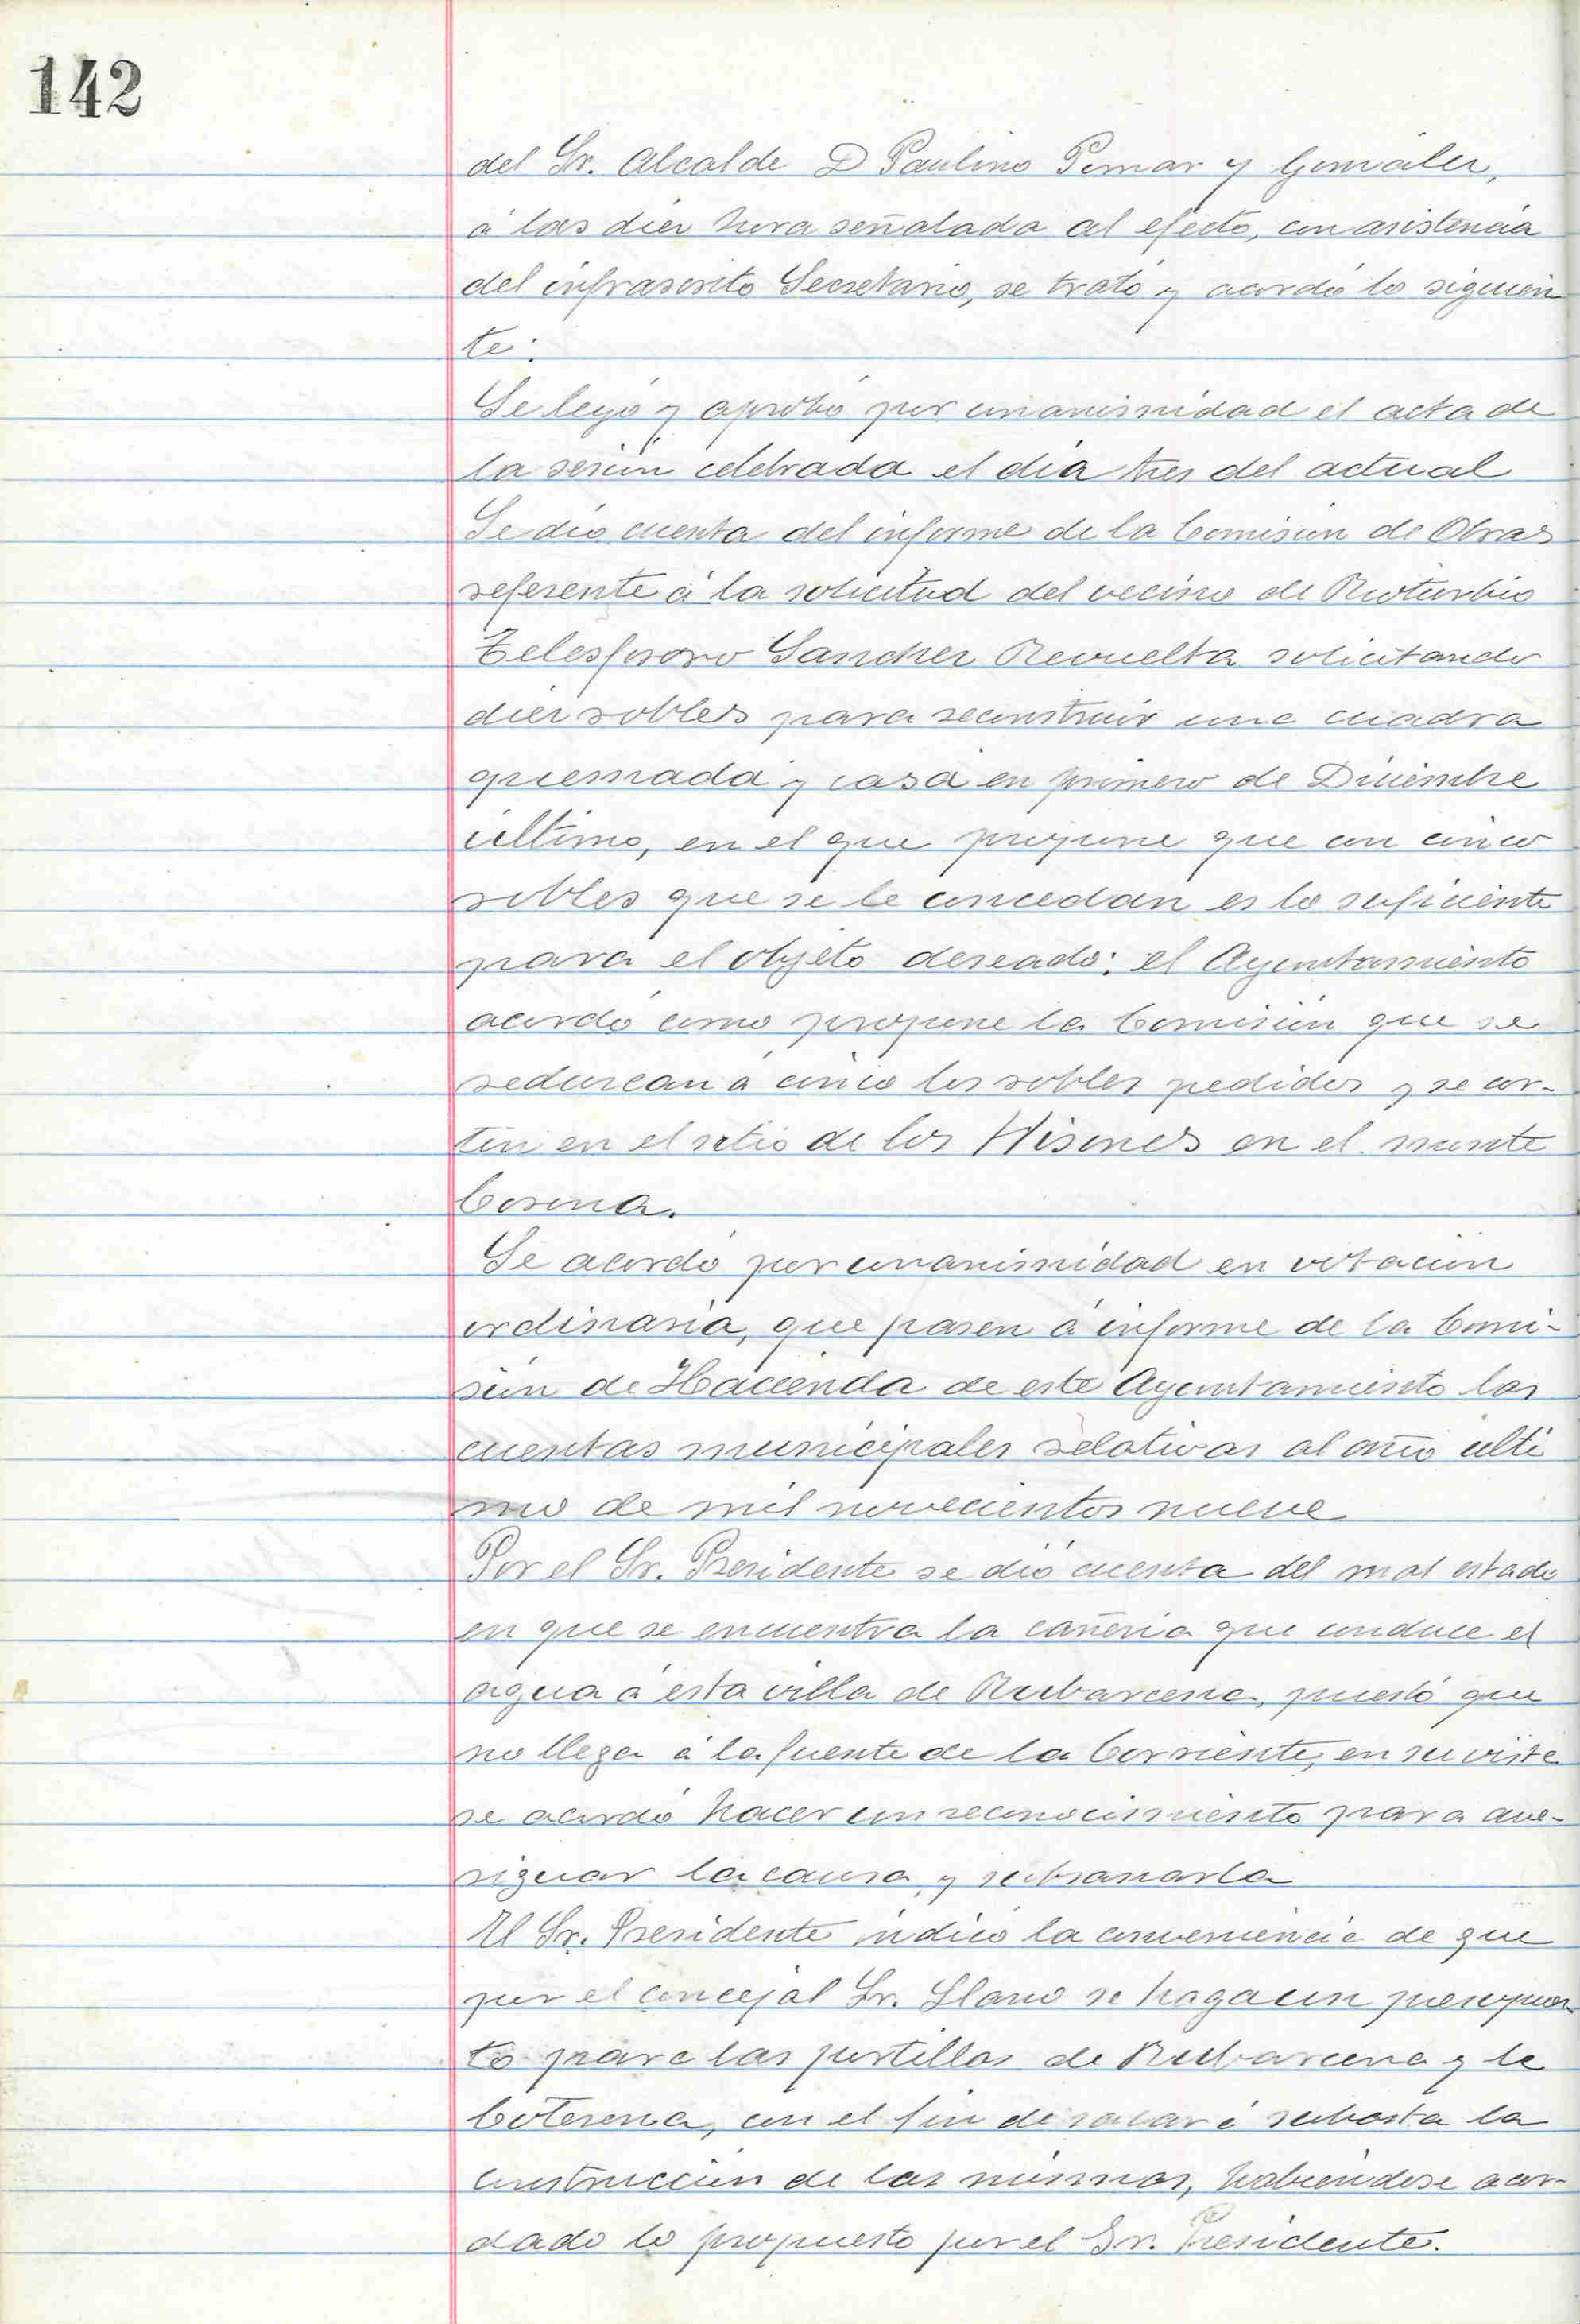 142
del Sr. Alcalde D Paulino Pomar y González,
á las diez hora señalada al efecto, con asistencia
del infrascrito Secretario, se trató y acordó lo siguien
te:
Se leyó y aprobó por unanimidad el acta de
la sesión celebrada el día tres del actual
Se dió cuenta del informe de la Comisión de Obras
referente á la solicitud del vecino de Rioturbio
Telesforo Sanchez Revuelta solicitando
diez robles para reconstruir una cuadra
quemada y casa en primero de Diciembre
último, en el que propone que con cinco
robles que se le concedan es lo suficiente
para el objeto deseado: el Ayuntamiento
acordó como propone la Comisión que se
reduzcan á cinco los robles pedidos y se cor-
ten en el sitio de los Hisones en el monte
Corona.
Se acordó por unanimidad en votación
ordinaria, que pasen á informe de la Comi-
sión de Hacienda de este Ayuntamiento las
cuentas municipales relativas al año ulti
mo de mil novecientos nueve
Por el Sr. Presidente se dió cuenta del mal estado
en que se encuentra la cañeria que conduce el
agua á esta villa de Rubarcena, puesto que
no llega á la fuente de la Corriente, en su vista
se acordó hacer un reconocimiento para ave-
riguar la causa y subsanarla
El Sr. Presidente indicó la conveniencia de que
por el concejal Sr. Llano se haga un presupues
to para las portillas de Rubarcena y la
Coteruca, con el fin de sacar á subasta la
construcción de las mismas, habiendose acor-
dado lo propuesto por el Sr. Presidente.